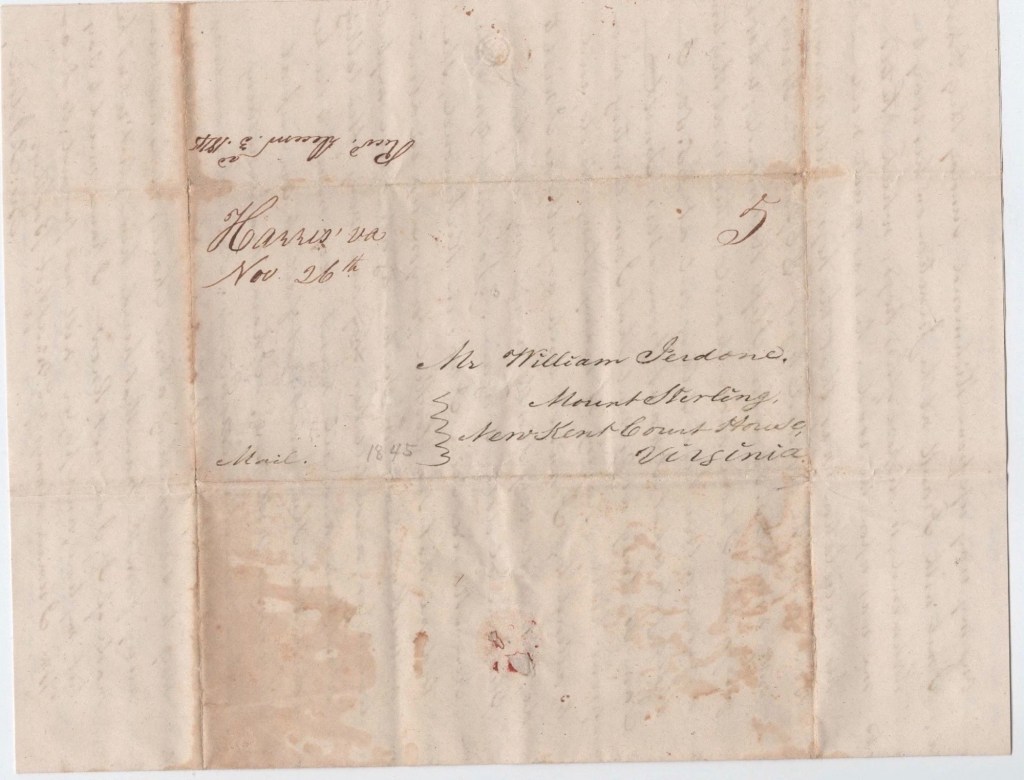 Recd. Decem. 3rd. 1845
Harris, va
5
Nov. 26th
Mr William Jerdone.
Mount Sterling,
New Kent Court House,
Virginia.
Mail.
1845